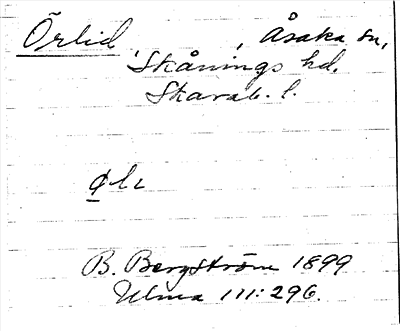 Örlid, Åsaka sn,
Skånings hd.
Skarab. l.
B. Bergström 1899
Ulma 111:296.